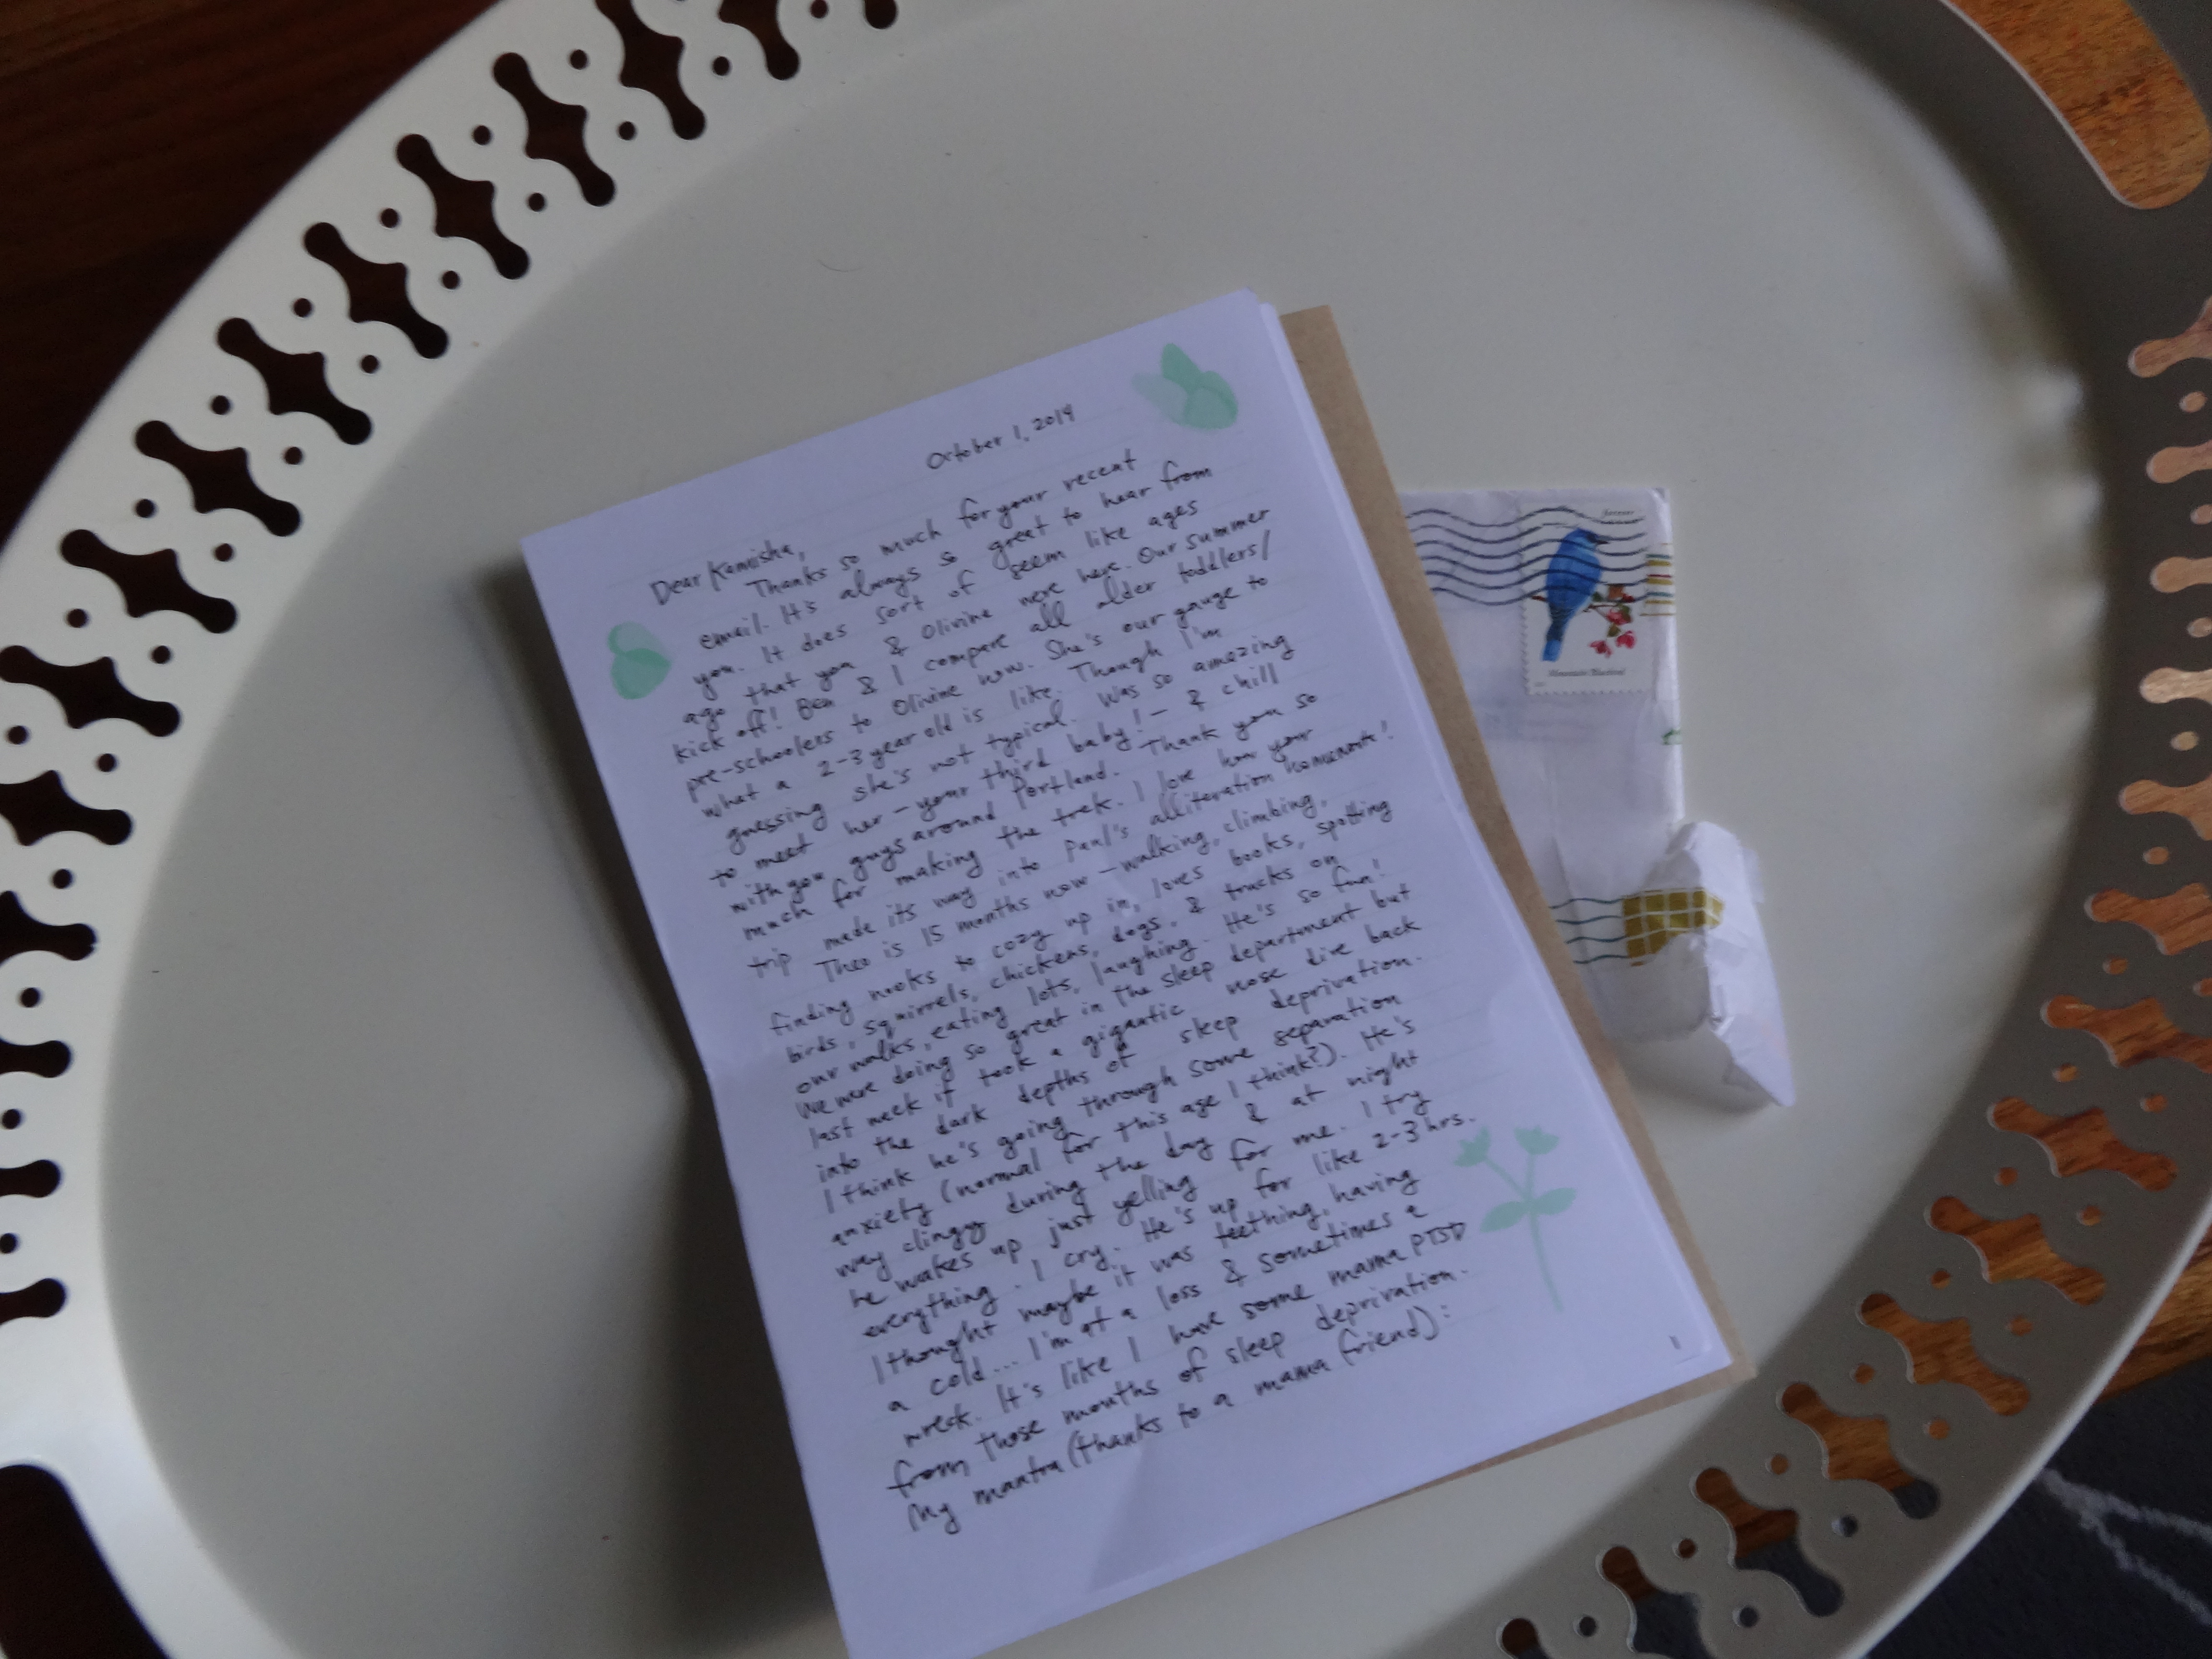 October 1, 2019
Dear Kamisha,
Thanks so much for your recent
email. It's always so great to hear from
you. It does sort of seem like ages
ago that you & Olivine were here. Our summer
kick off! Ben & I compare all older toddlers/
pre-schoolers to Olivine now. She's our gauge to
what a 2-3 year old is like. Though I'm
guessing she's not typical. Was so amazing
to meet her - your third baby! - & chill
with you guys around Portland. Thank you so
much for making the trek. I love how your
trip made its way into Paul's alliteration homework!
Theo is 15 months now - walking, climbing,
finding nooks to cozy up in, loves books, spotting
birds, squirrels, chickens, dogs, & trucks on
our walks, eating lots, laughing. He's so fun!
We were doing so great in the sleep department but
last week it took a gigantic nose dive back
into the dark depths of sleep deprivation.
I think he's going through some separation
anxiety (normal for this age I think?). He's
way clingy during the day & at night
he wakes up just yelling for me. I try
everything. I cry. He's up for like 2-3 hrs.
I thought maybe it was teething, having
a cold... I'm at a loss & sometimes a
wreck. It's like I have some mama PTSD
from those months of sleep deprivation.
My mantra (thanks to a mama friend):
1
forever
Mountain Bluebird